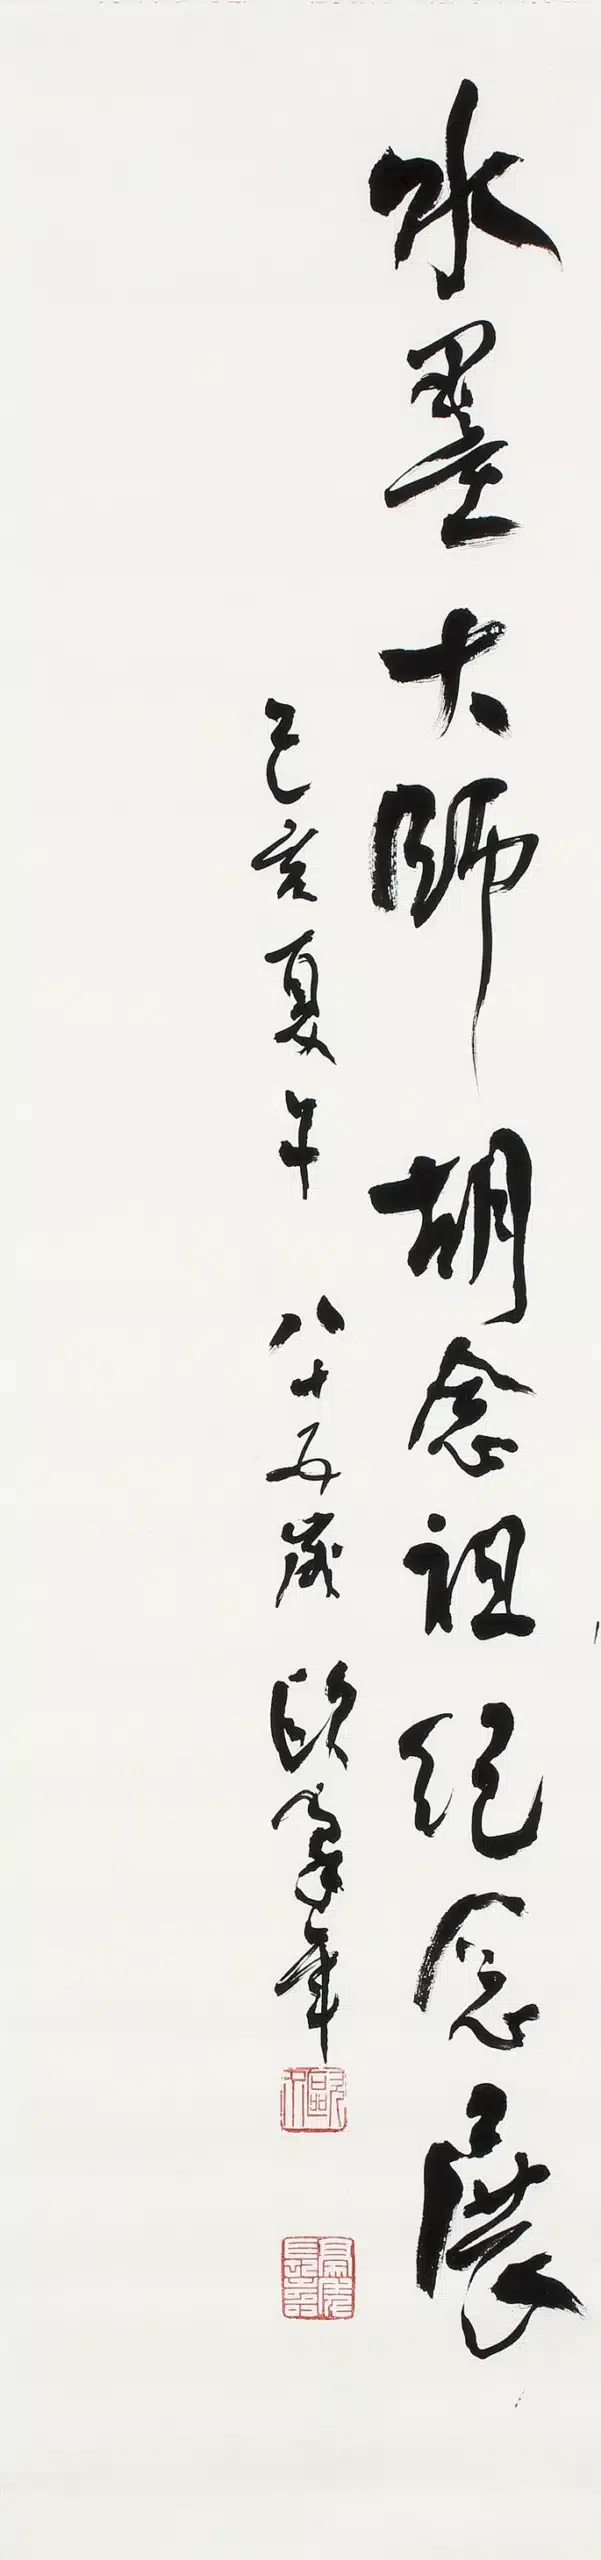 水墨大師胡念祖紀念展
己亥夏午 八十五歲 歐豪年